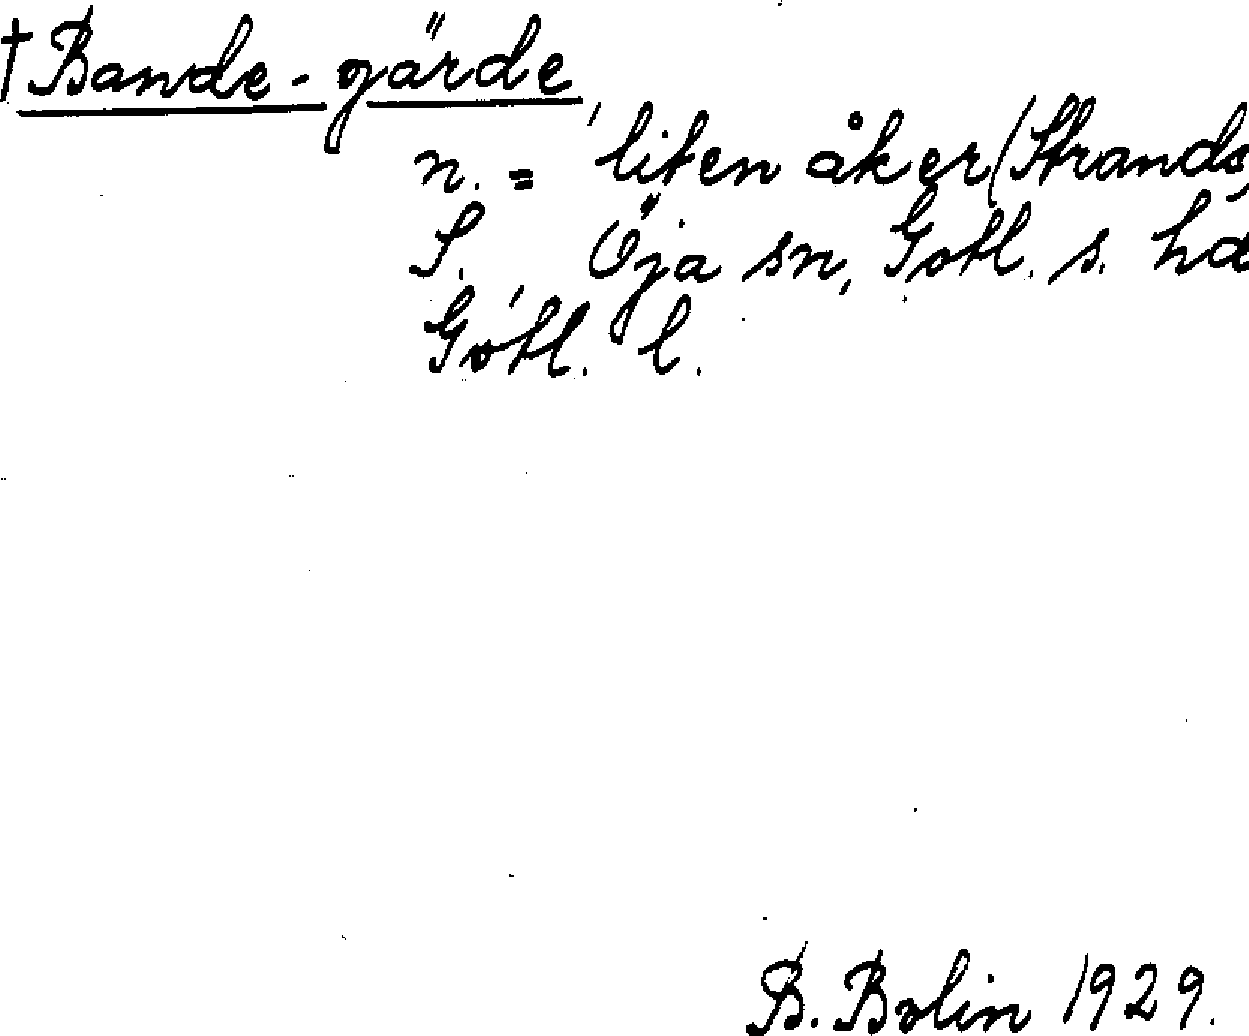 † Bande-gärde
n. = liten åker (Strands,
S. Öja sn, Gotl. s. hd
Gotl. l.
B. Bolin 1929.